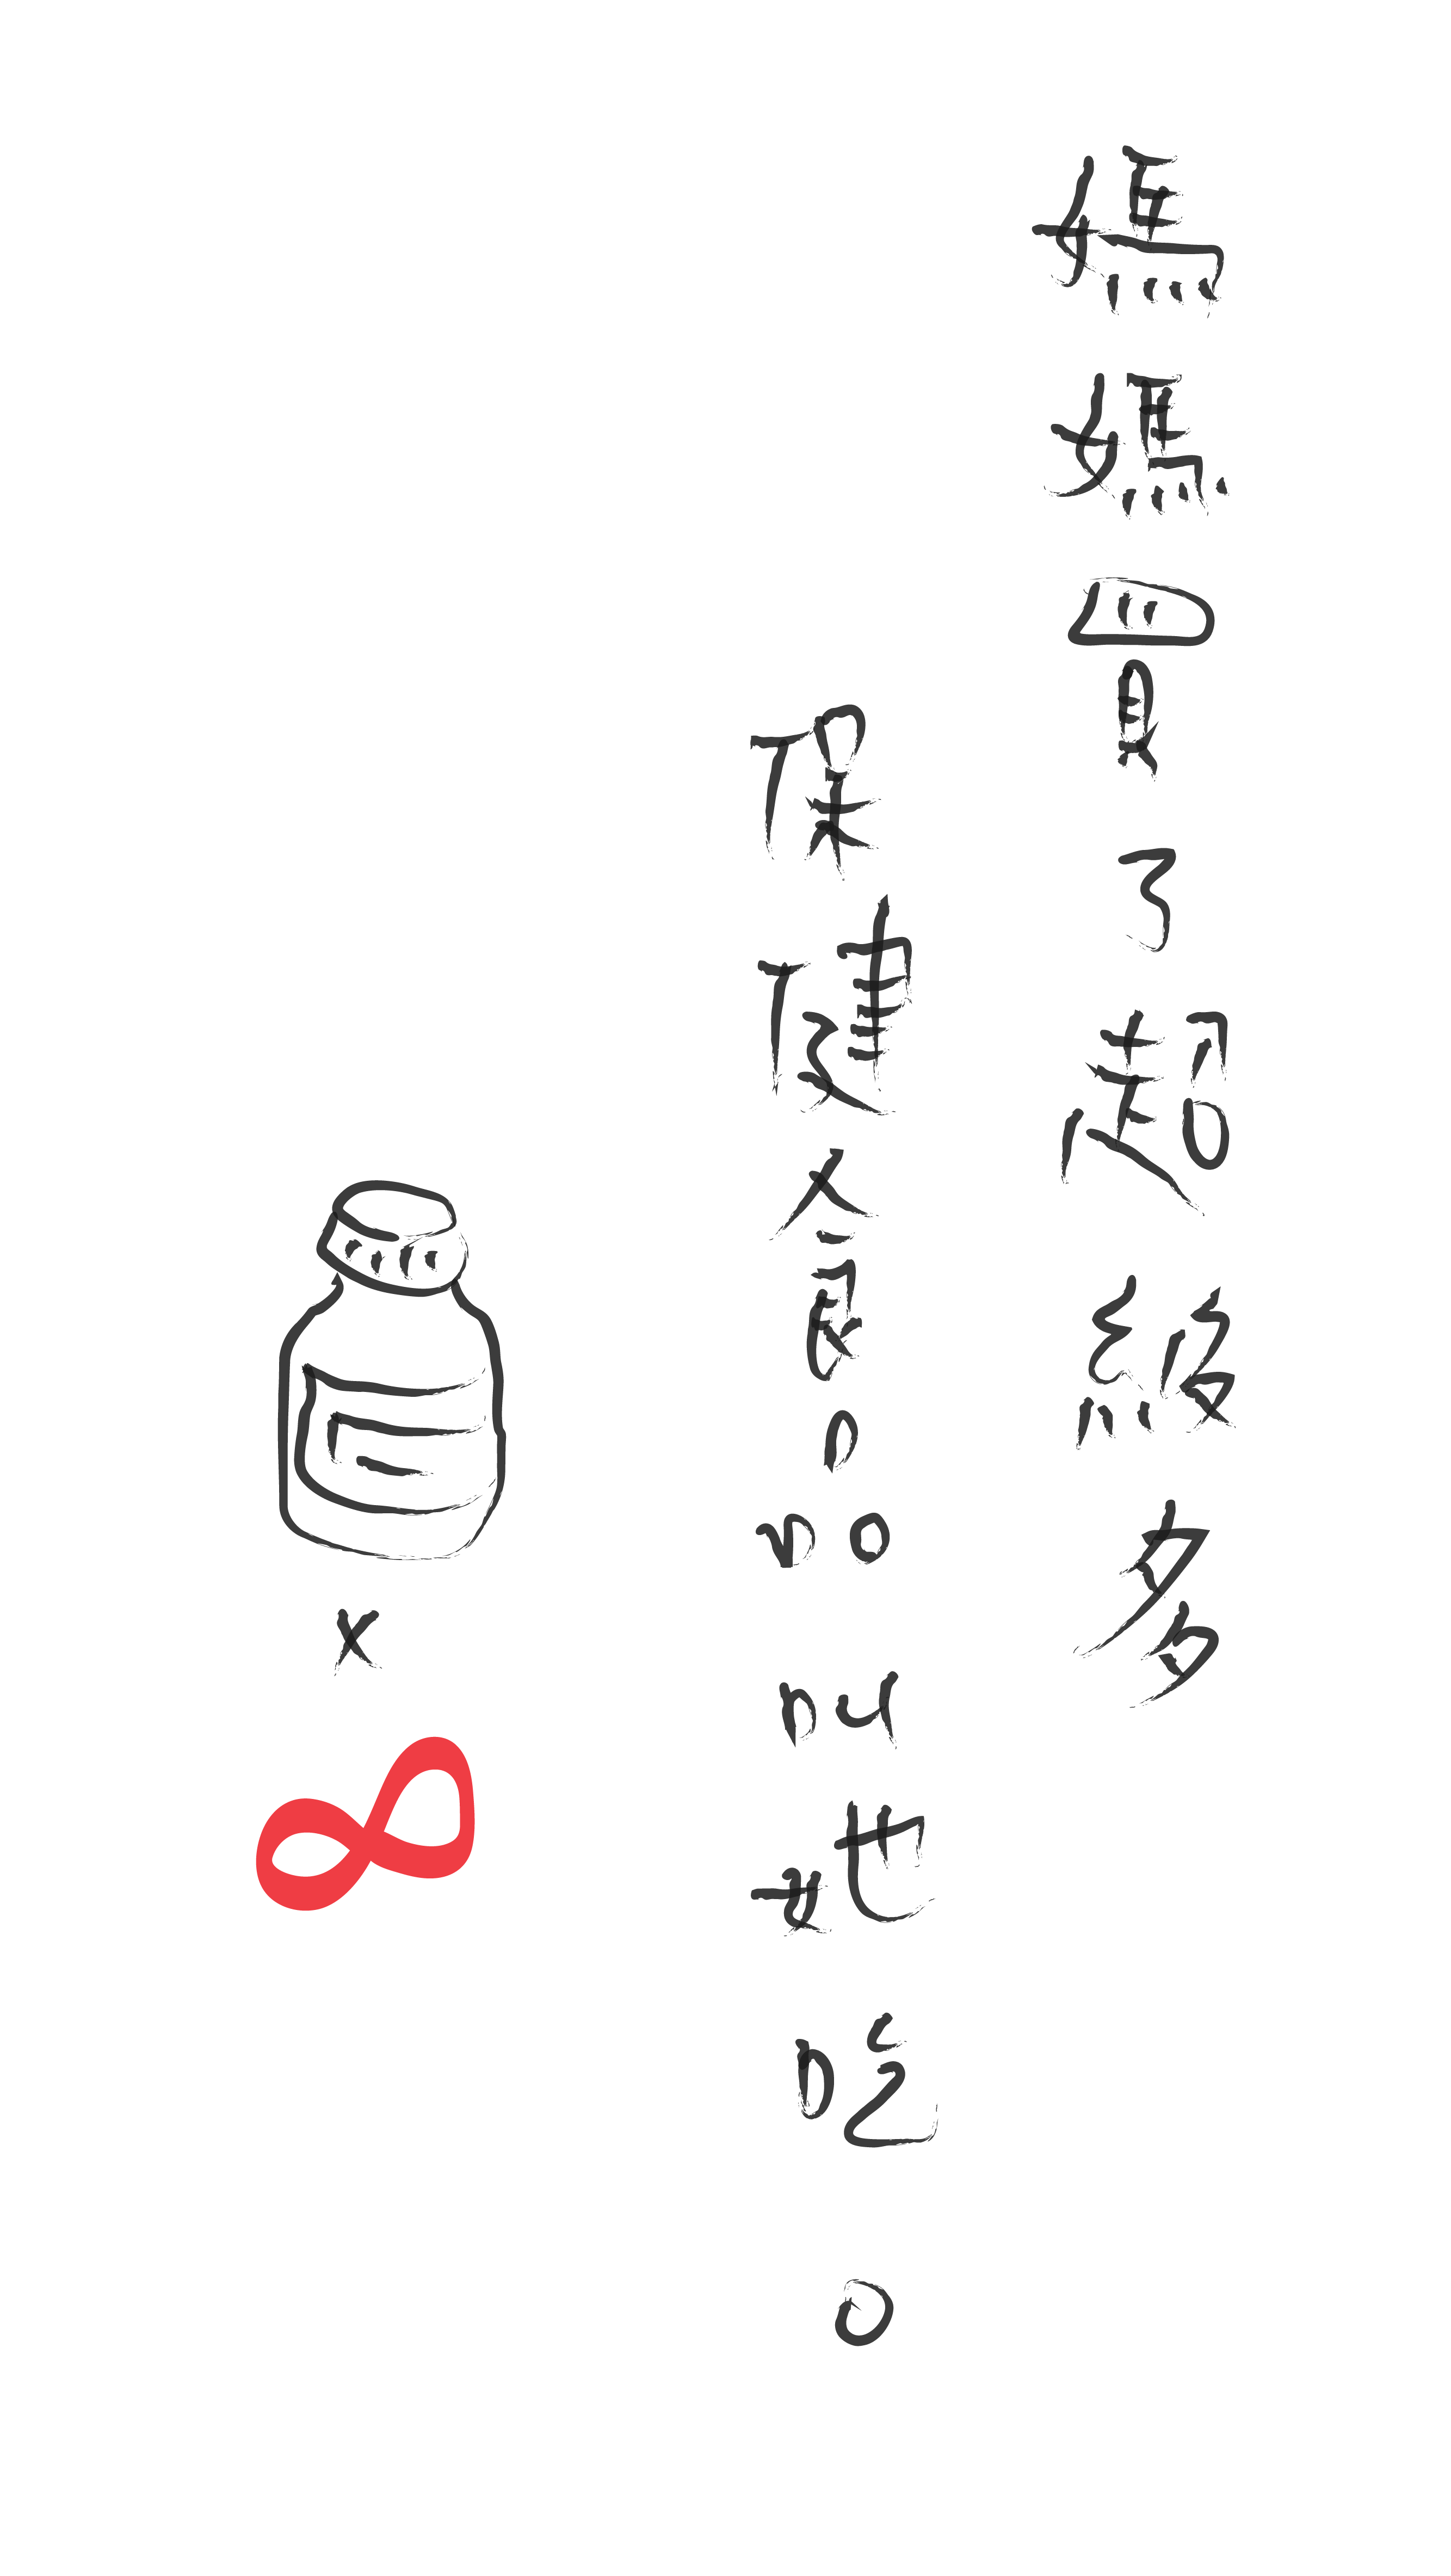 媽媽買了超級多
保健食品叫她吃。
x
∞